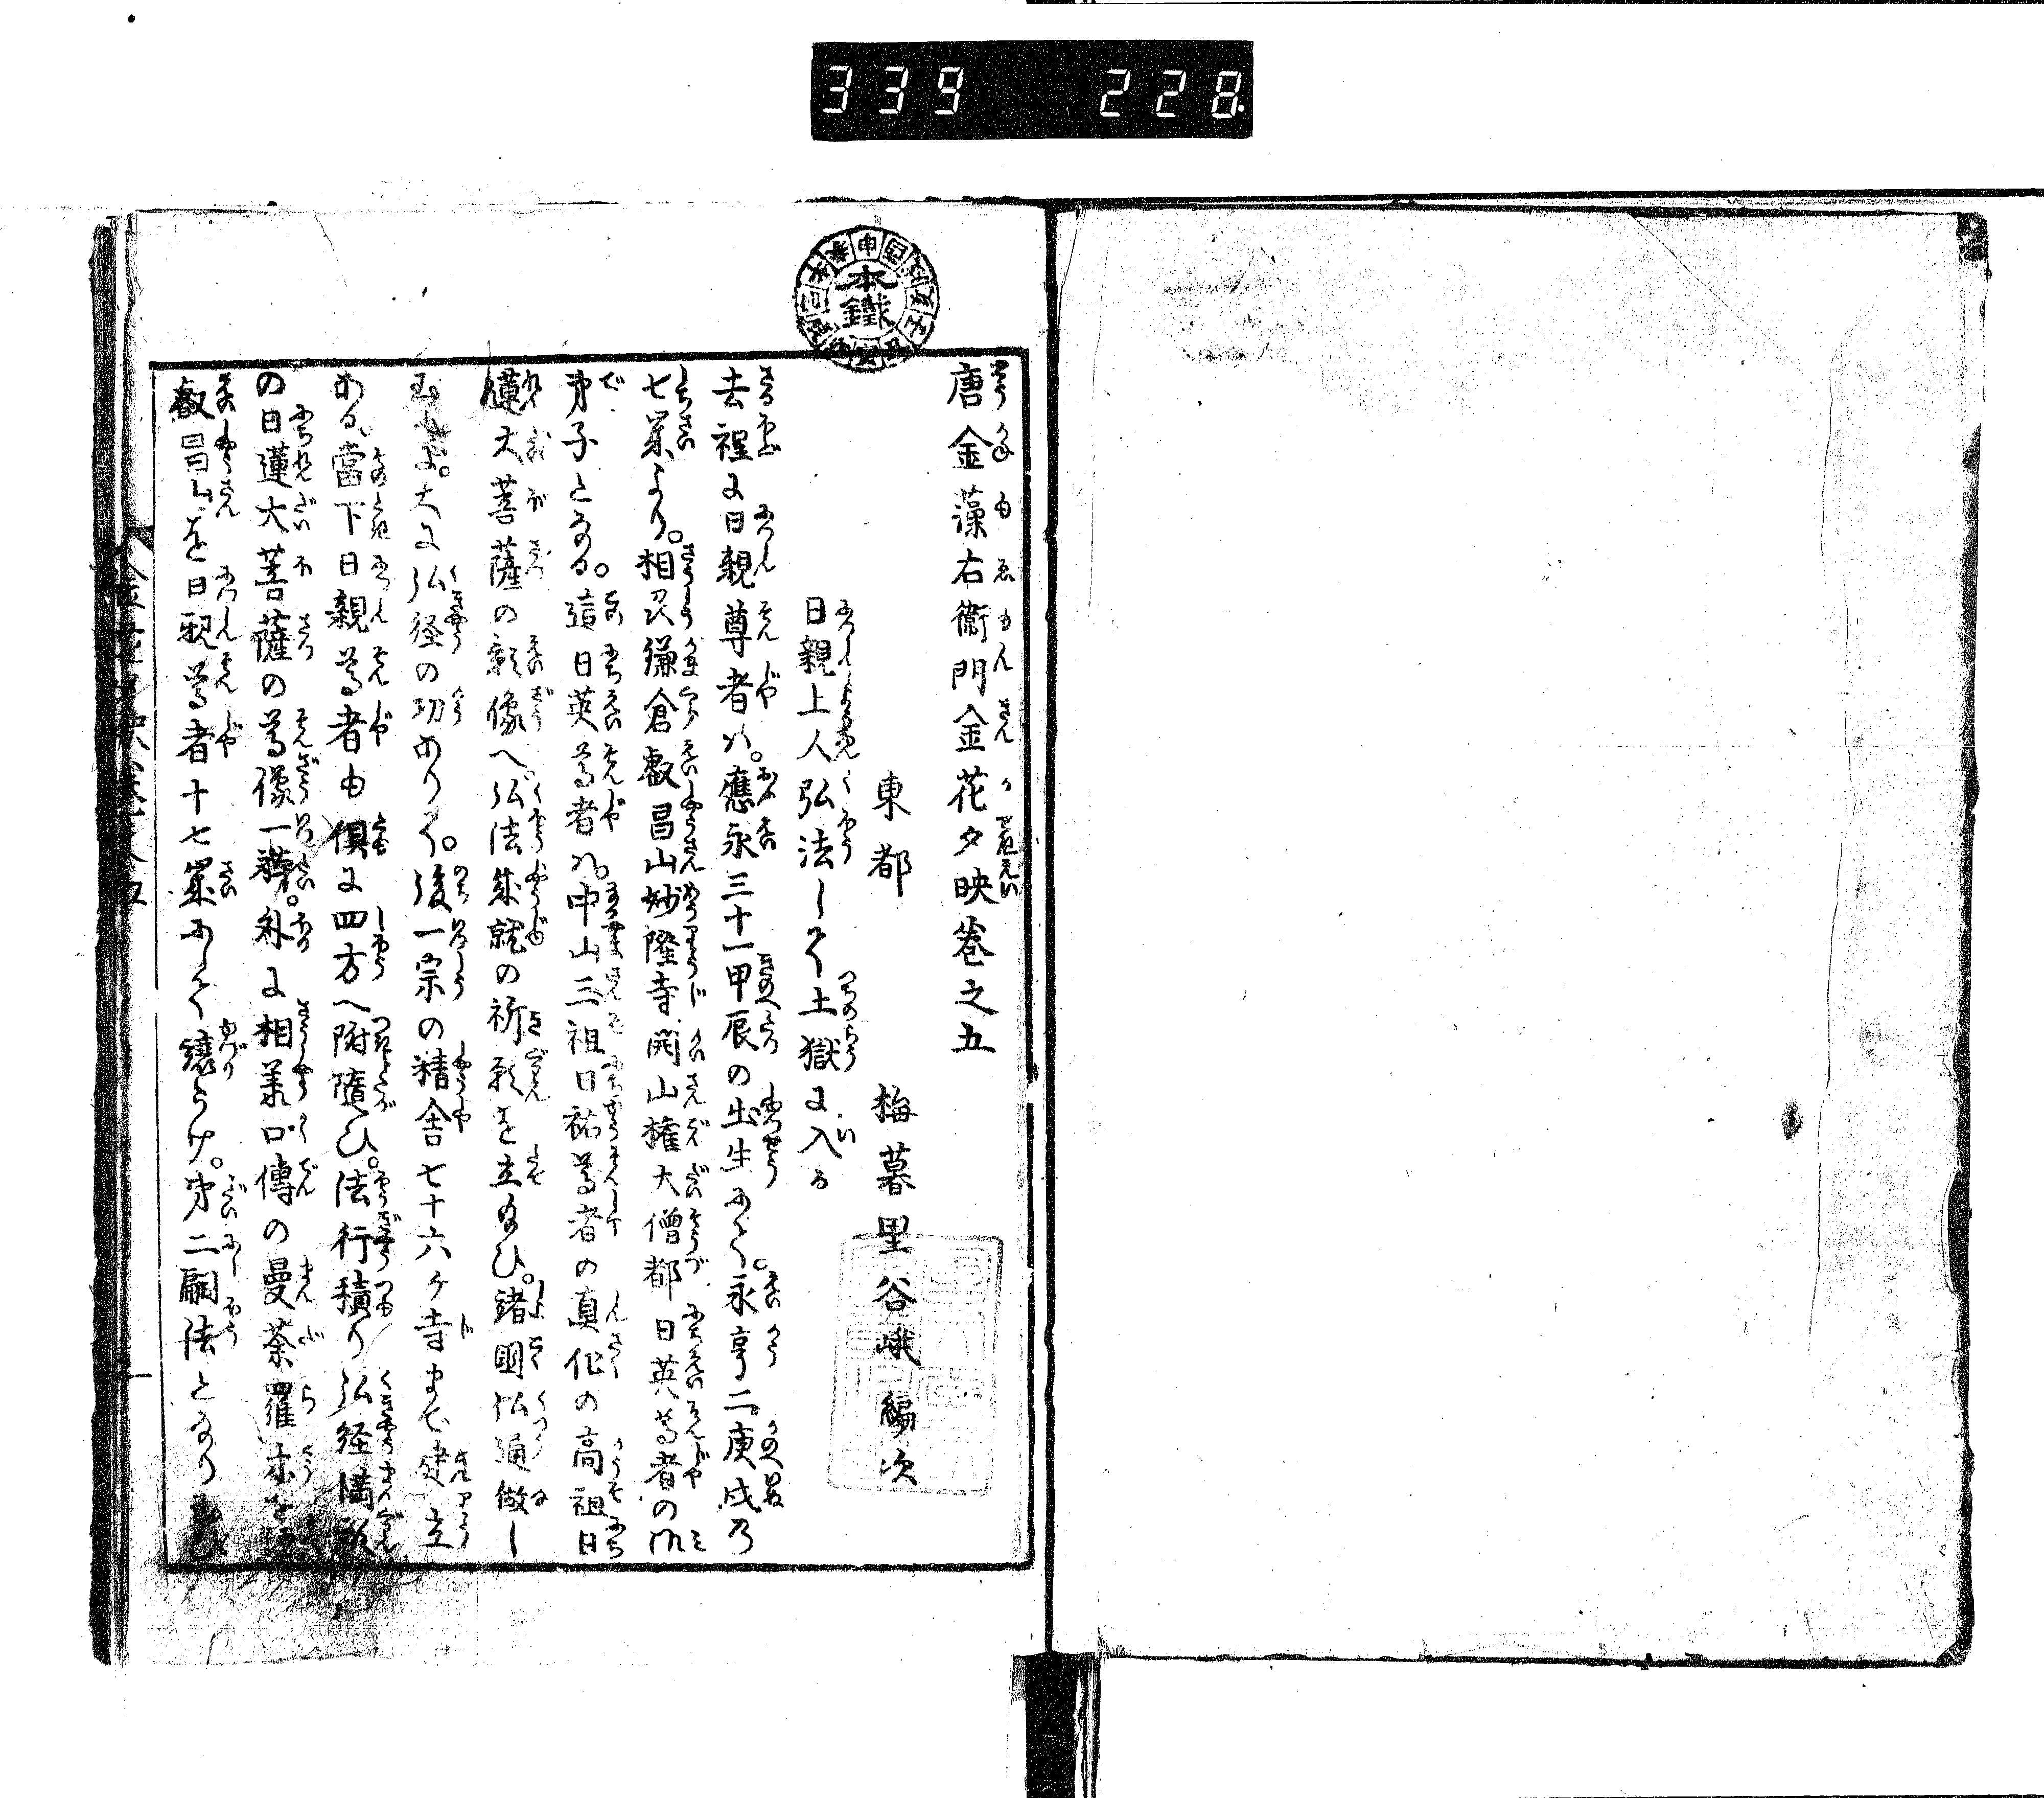 339 228
本鐵
唐金藻右衛門金花夕映巻之五
東都 梅暮里谷峨 編次
日親上人弘法して土獄に入る
去程に日親尊者ハ。應永三十一甲辰の出生にて。永享二庚戌乃
七歳より。相刕鎌倉叡昌山妙隆寺開山権大僧都日英尊者の御
弟子となる。這日英尊者ハ。中山三祖日祐尊者の真作の高祖日
蓮大菩薩の影像へ。弘法成就の祈願を立給ひ。諸國弘通做し
玉ふに。大に弘経の功ありて。後一宗の精舎七十六ヶ寺まで建立
ある。當下日親尊者も倶に四方へ附随ひ。法行積り弘経満願
の日蓮大菩薩の尊像一軀。外に相承口傳の曼荼羅を
叡昌山を日親尊者十七歳にして譲うけ。第二嗣法となり